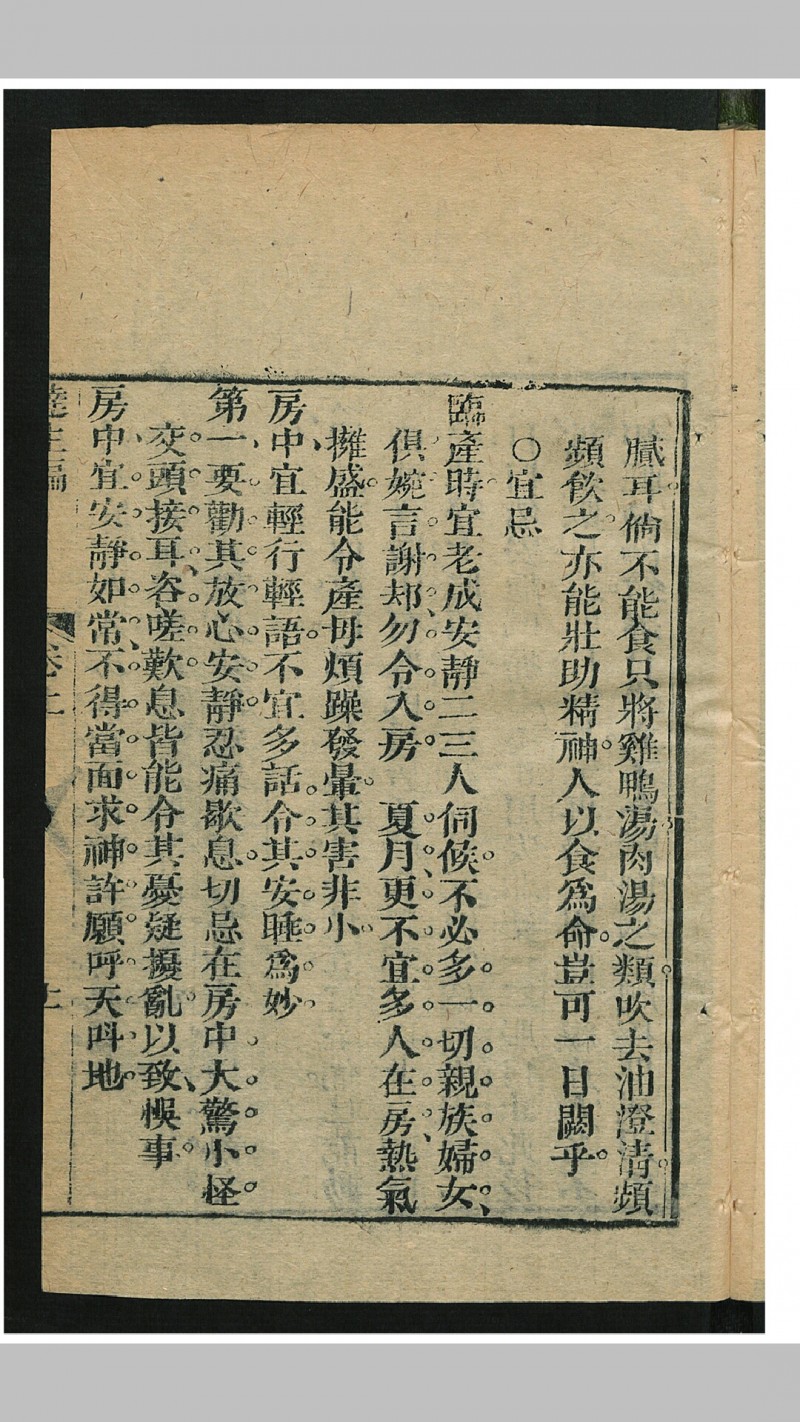 膩耳倘不能食只將雞鴨湯肉湯之類吹去油澄清頻
頻飲之亦能壯助精神。人以食爲命豈可一日闕乎。
〇宜忌
臨產時宜老成安靜二三人伺候。不必多一切親族婦女、
俱婉言謝却、勿令入房。夏月、更不宜多人在房、熱氣
擁盛。能令產母煩躁發暈。其害非小。
房中宜輕行輕語。不宜多話。令其安睡爲妙。
第一、要勸其放心安靜忍痛歇息。切忌在房中大驚小怪。
交頭接耳、咨嗟歎息。皆能令其憂疑擾亂。以致悞事。
房中宜安靜如常、不得當面求神許願呼天呌地。
達生編
卷上